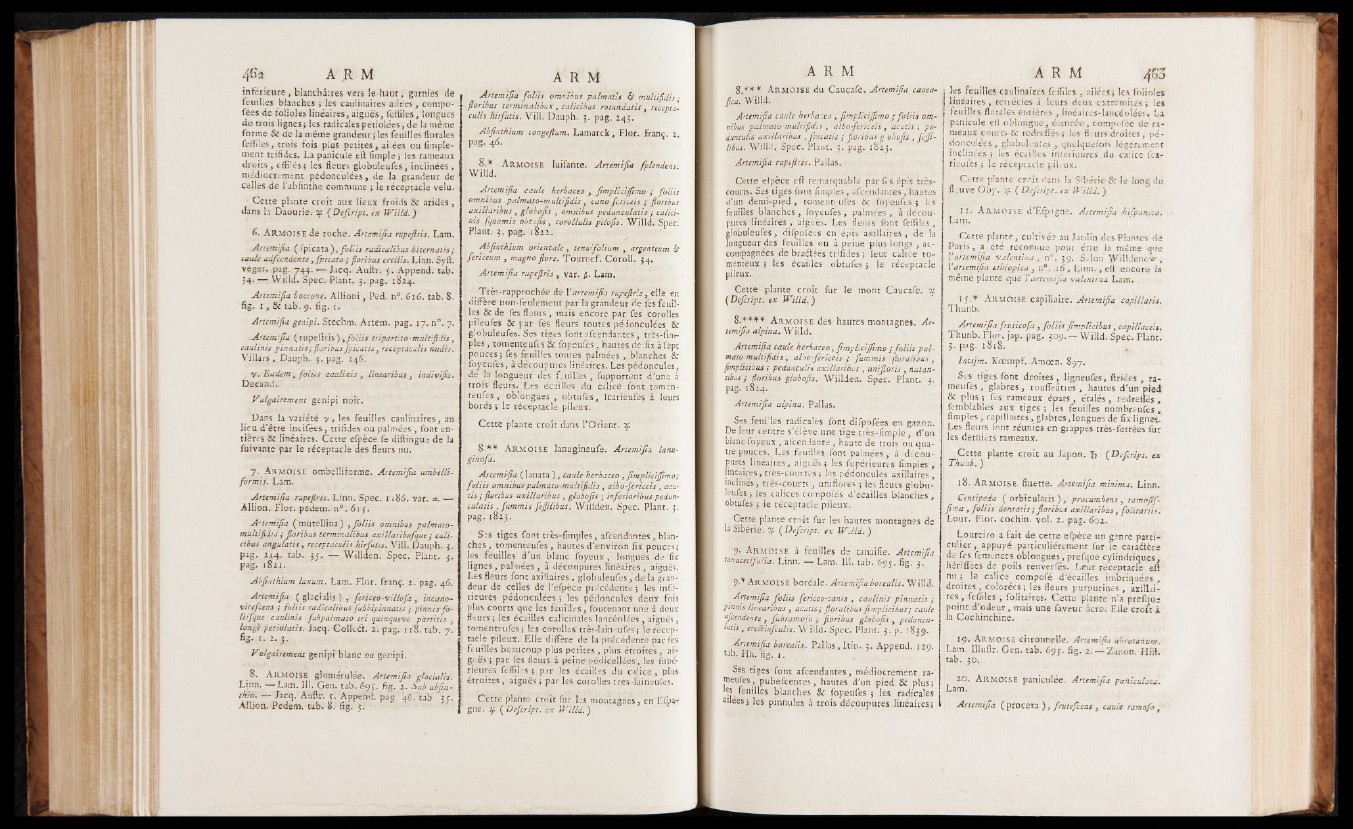 462 A R M
inférieure, blanchâtres vers le haut, garnies de
feuilles blanches ; les caulinaires ailées, compo-
fées de folioles linéaires, aiguës, feffiles, longues
de trois lignes; les radicales petiolées, de la même
forme & de la même grandeur ; les feuilles florales
feffiles, trois fois plus petites, ailées ou fimple-
ment trifides. La panicule eft fimple ; les rameaux
droits, effilés ; les fleurs globuleufes, inclinées,
médiocrement pédonculées, de la grandeur de
celles de l'abfinthe commune ; le réceptacle velu.
Cette plante croît aux lieux froids & arides,
dans la Daourie. ♃ (Defcript. ex Willd.)
6. ARMOISE de roche. Artemifia rupeftris. Lam.
Artemifia (fpicata), foliis radicalibus biternatis ;
caule adfcendente, fpicato ; floribus erectis. Linn. Syft.
veget. pag. 744. — Jacq. Auftr. 5. Append. tab.
34. — Willd. Spec. Plant. 3. pag. 1824.
Artemifia boccone. Allioni, Ped. n°. 616. tab. 8.
fig. 1, & tab. 9. fig. 1.
Artemifia genipi. Stechm. Artem. pag. 17. n°. 7.
Artemifia (rupeftris), foliis tripartito-multifidis,
caulinis pinnatis ; floribus fpicatis, receptaculis nudis.
Villars, Dauph. 3. pag. 246.
γ. Eadem, foliis caulinis, linearibus, indivifis.
Decand.
Vulgairement genipi noir.
Dans la variété γ, les feuilles caulinaires, au
lieu d'être incifées, trifides ou palmées, font en-
tières & linéaires. Cette efpèce fe diftingue de la
fuivante par le réceptacle des fleurs nu.
7. ARMOISE ombelliforme. Artemifia umbelli-
formis. Lam.
Artemifia rupeftris. Linn. Spec. 1186. var. α. —
Allion. Flor. pedem. n°. 615.
Artemifia (mutellina), foliis omnibus palmato-
multifidis ; floribus terminalibus axillaribufque ; cali-
cibus angulatis, receptaculis hirfutis. Vill. Dauph. 3.
pag. 244. tab. 35. — Willden. Spec. Plant. 3.
pag. 1821.
Abfinthium laxum. Lam. Flor. franç. 2. pag. 46.
Artemifia (glacialis), fericeo-villofa, incano-
virefcens ; foliis radicalibus fubbipinnatis ; pinnis fo-
liifque caulinis fubpalmato tri quinqueve partitis,
longè petiolatis. Jacq. Collect. 2. pag. 118. tab. 7.
fig. 1. 2. 3.
Vulgairement genipi blanc ou genipi.
8. ARMOISE glomérulée. Artemifia glacialis.
Linn. — Lam. Ill. Gen. tab. 695. fig. 2. Sub abfin-
thio. — Jacq. Auftr. 5. Append. pag. 46. tab. 35.
Allion. Pedem. tab. 8. fig. 3.
A R M
Artemifia foliis omnibus palmatis & multifidis ;
floribus terminalibus, calicibus rotundatis, recepta-
culis hirfutis. Vill. Dauph. 3. pag. 243.
Abfinthium congeftum. Lamarck, Flor. franç. 2.
pag. 46.
8.* ARMOISE luifante. Artemifia fplendens.
Willd.
Artemifia caule herbaceo, fimpliciffimo ; foliis
omnibus palmato-multifidis, cano fericeis ; floribus
axillaribus, globofis, omnibus pedunculatis ; calici-
nis fquamis obtufis, corollulis pilofis. Willd. Spec.
Plant. 3. pag. 1822.
Abfinthium orientale, tenuifolium, argenteum &
fericeum, magno flore. Tournef. Coroll. 34.
Artemifia rupeftris, var. β. Lam.
Très-rapprochée de l'artemifia rupeftris, elle en
diffère non-feulement par la grandeur de fes feuil-
les & de fes fleurs, mais encore par fes corolles
pileufes & par fes fleurs toutes pédonculées &
globuleufes. Ses tiges font afcendantes, très-fim-
ples, tomenteufes & foyeufes, hautes de fix à fept
pouces ; fes feuilles toutes palmées, blanches &
foyeufes, à découpures linéaires. Les pédoncules,
de la longueur des feuilles, fupportent d'une à
trois fleurs. Les écailles du calice font tomen-
teufes, oblongues, obtufes, fcarieufes à leurs
bords ; le réceptacle pileux.
Cette plante croît dans l'Orient. ♃
8.** ARMOISE lanugineufe. Artemifia lanu-
ginofa.
Artemifia (lanata), caule herbaceo, fimpliciffimo ;
foliis omnibus palmato-multifidis, albo-fericeis, acu-
tis ; floribus axillaribus, globofis ; inferioribus pedun-
culatis, fummis feffilibus. Willden. Spec. Plant. 3.
pag. 1823.
Ses tiges font très-fimples, afcendantes, blan-
ches, tomenteufes, hautes d'environ fix pouces ;
les feuilles d'un blanc foyeux, longues de fix
lignes, palmées, à découpures linéaires, aiguës.
Les fleurs font axillaires, globuleufes, de la gran-
deur de celles de l'efpèce précédente ; les infé-
rieures pédonculées ; les pédoncules deux fois
plus courts que les feuilles, foutenant une à deux
fleurs ; les écailles calicinales lancéolées, aiguës,
tomenteufes ; les corolles très-lain-ufes ; le récep-
tacle pileux. Elle diffère de la précédente par fes
feuilles beaucoup plus petites, plus étroites, ai-
guës ; par fes fleurs à peine pédicellées, les fupé-
rieures feffiles ; par les écailles du calice, plus
étroites, aiguës ; par les corolles très-laineufes.
Cette plante croît fur les montagnes, en Efpa-
gne. ♃ (Defcript. ex Willd.)
A R M
8.*** ARMOISE du Caucafe. Artemifia cauca-
fica. Willd.
Artemifia caule herbaceo, fimpliciffimo ; foliis om-
nibus palmato multifidis, albo-fericeis, acutis ; pe-
dunculis axillaribus, fpicatis ; floribus globofis, feffi-
libus. Willd. Spec. Plant. 3. pag. 1823.
Artemifia rupeftris. Pallas.
Cette efpèce eft remarquable par fes épis très-
courts. Ses tiges font fimples, afcendantes, hautes
d'un demi-pied, tomenteufes & foyeufes ; les
feuilles blanches, foyeufes, palmées, à décou-
pures linéaires, aiguës. Les fleurs font feffiles,
globuleufes, difpofées en épis axillaires, de la
longueur des feuilles ou à peine plus longs, ac-
compagnées de bractées trifides ; leur calice to-
menteux ; les écailles obtufes ; le réceptacle
pileux.
Cette plante croît fur le mont Caucafe. ♃
(Defcript. ex Willd.)
8.**** ARMOISE des hautes montagnes. Ar-
temifia alpina. Willd.
Artemifia caule herbaceo, fimpliciffimo ; foliis pal-
mato multifidis, albo-fericeis ; fummis floralibus,
fimplicibus ; pedunculis axillaribus, unifloris, nutan-
tibus ; floribus globofis. Willden. Spec. Plant. 3.
pag. 1824.
Artemifia alpina. Pallas.
Ses feuilles radicales font difpofées en gazon.
De leur centre s'élève une tige très-fimple, d'un
blanc foyeux, afcendante, haute de trois ou qua-
tre pouces. Les feuilles font palmées, à décou-
pures linéaires, aiguës ; les fupérieures fimples,
linéaires, très-courtes ; les pédoncules axillaires,
inclinés, très-courts, uniflores ; les fleurs globu-
leufes ; les calices compofés d'écailles blanches,
obtufes ; le réceptacle pileux.
Cette plante croît fur les hautes montagnes de
la Sibérie. ♃ (Defcript. ex Willd.)
9. ARMOISE à feuilles de tanaifie. Artemifia
tanacetifolia. Linn. — Lam. Ill. tab. 695. fig. 3.
9.* ARMOISE boréale. Artemifia borealis. Willd.
Artemifia foliis fericeo-canis, caulinis pinnatis ;
pinnis linearibus, acutis ; floralibus fimplicibus ; caule
afcendente, fubramofo ; floribus globofis, peduncu-
latis, erectiufculis. Willd. Spec. Plant. 3. p. 1839.
Artemifia borealis. Pallas, Itin. 3. Append. 129.
tab. Hh. fig. 1.
Ses tiges font afcendantes, médiocrement ra-
meufes, pubefcentes, hautes d'un pied & plus ;
les feuilles blanches & foyeufes ; les radicales
ailées ; les pinnules à trois découpures linéaires ;
A R M 463
les feuilles caulinaires feffiles, ailées ; les folioles
linéaires, rétrécies à leurs deux extrémités ; les
feuilles florales entières, linéaires-lancéolées. La
panicule eft oblongue, élancée, compofée de ra-
meaux courts & redreffés ; les fleurs droites, pé-
donculées, globuleufes, quelquefois légèrement
inclinées ; les écailles intérieures du calice fca-
rieufes ; le réceptacle pileux.
Cette plante croît dans la Sibérie & le long du
fleuve Oby. ♃ (Defcript. ex Willd.)
11. ARMOISE d'Efpagne. Artemifia hifpanica.
Lam.
Cette plante, cultivée au Jardin des Plantes de
Paris, a été reconnue pour être la même que
l'artemifia valentina, n°. 39. Selon Willdenow,
l'artemifia ethiopica, n°. 16, Linn., eft encore la
même plante que l'artemifia valentina Lam.
15.* ARMOISE capillaire. Artemifia capillaris.
Thunb.
Artemifia fruticofa, foliis fimplicibus, capillaceis.
Thunb. Flor. jap. pag. 309. — Willd. Spec. Plant.
3. pag. 1818.
Intsjin. Kœmpf. Amœn. 897.
Ses tiges font droites, ligneufes, ftriées, ra-
meufes, glabres, rouffeâtres, hautes d'un pied
& plus ; fes rameaux épars, étalés, redreffés,
femblables aux tiges ; les feuilles nombreufes,
fimples, capillaires, glabres, longues de fix lignes.
Les fleurs font réunies en grappes très-ferrées fur
les derniers rameaux.
Cette plante croît au Japon. ♄ (Defcript. ex
Thunb.)
18. ARMOISE fluette. Artemifia minima. Linn.
Centipeda (orbicularis), procumbens, ramofif-
fima, foliis dentatis ; floribus axillaribus, folitariis.
Lour. Flor. cochin. vol. 2. pag. 602.
Loureiro a fait de cette efpèce un genre parti-
culier, appuyé particulièrement fur le caractère
de fes femences oblongues, prefque cylindriques,
hériffées de poils renverfés. Leur réceptacle eft
nu ; le calice compofé d'écailles imbriquées,
droites, colorées ; les fleurs purpurines, axillai-
res, feffiles, folitaires. Cette plante n'a prefque
point d'odeur, mais une faveur âcre. Elle croît à
la Cochinchine.
19. ARMOISE citronnelle. Artemifia abrotanum.
Lam. Illuftr. Gen. tab. 695. fig. 2. — Zanon. Hift.
tab. 30.
20. ARMOISE paniculée. Artemifia paniculata.
Lam.
Artemifia (procera), frutefcens, caule ramofo,